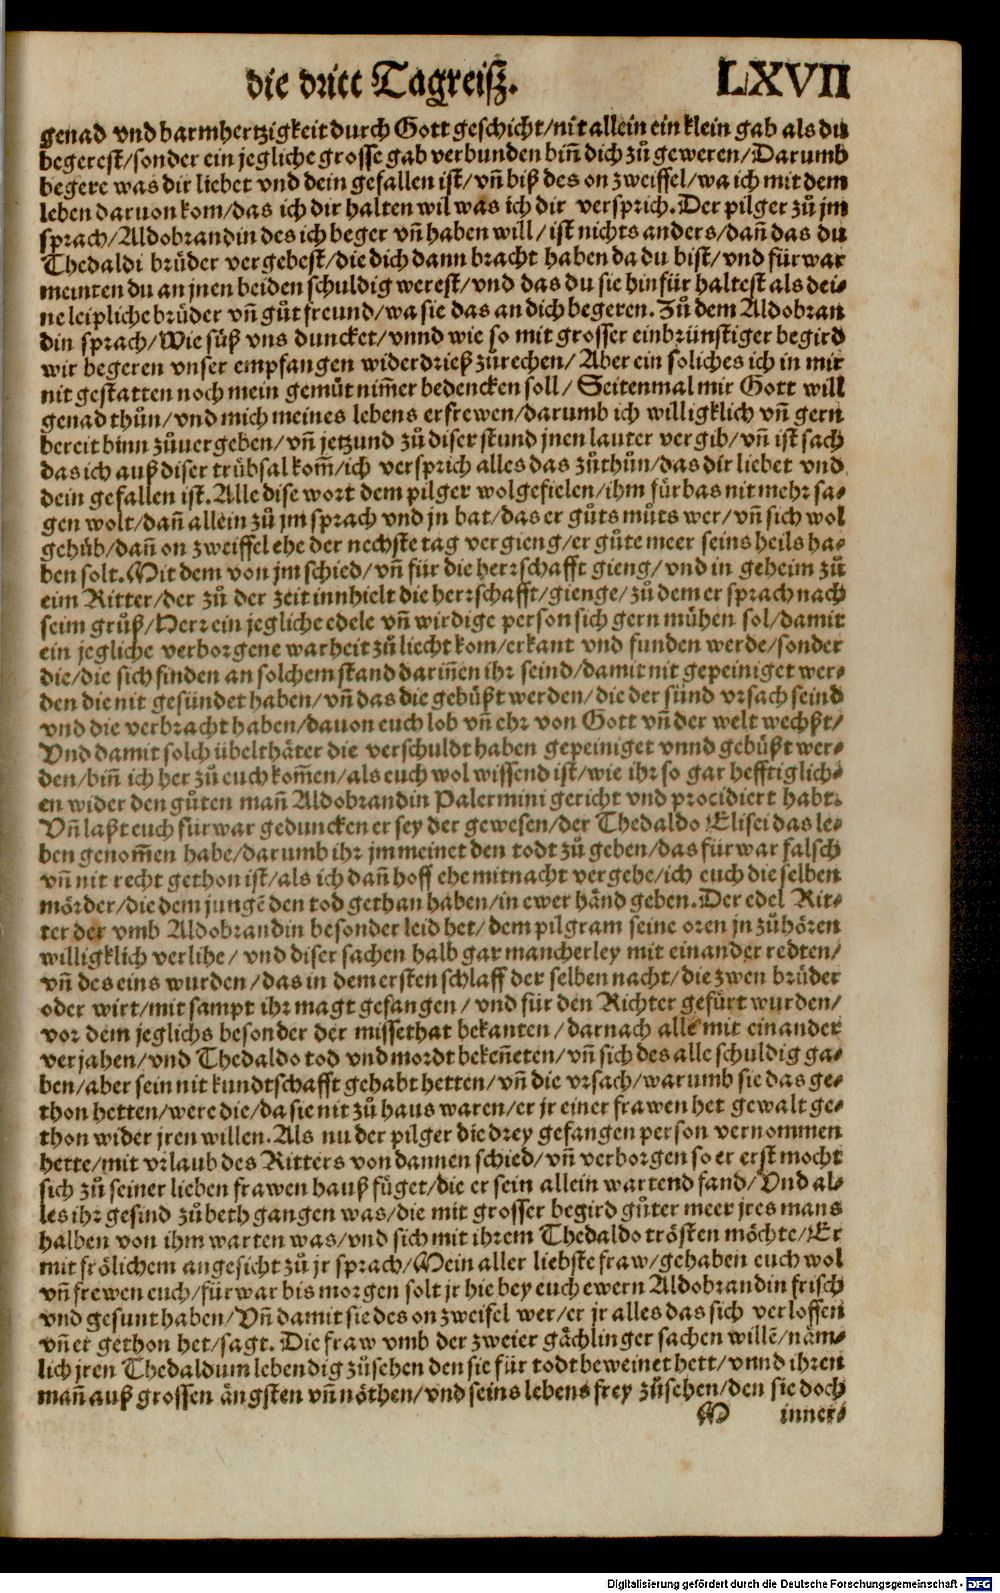 die dritt Tagreisz. LXVII
genad vnd barmhertzigkeit durch Gott geschicht/nit allein ein klein gab als du
begerest/sonder ein jegliche grosse gab verbunden bin̄ dich zů geweren/Darumb
begere was dir liebet vnd dein gefallen ist/vn̄ biß des on zweiffel/wa ich mit dem
leben daruon kom/das ich dir halten wil was ich dir versprich. Der pilger zů jm
sprach/Aldobrandin des ich beger vn̄ haben will/ist nichts anders/dan̄ das du
Thedaldi brůder vergebest/die dich dann bracht haben da du bist/vnd fürwar
meinten du an jnen beiden schuldig werest/vnd das du sie hinfür haltest als dei-
ne leipliche brůder vn̄ gůt freund/wa sie das an dich begeren. Zů dem Aldobran
din sprach/Wie süß vns duncket/vnnd wie so mit grosser einbrünstiger begird
wir begeren vnser empfangen widerdrieß zůrechen/Aber ein soliches ich in mir
nit gestatten noch mein gemůt nim̄er bedencken soll/Seitenmal mir Gott will
genad thůn/vnd mich meines lebens erfrewen/darumb ich willigklich vn̄ gern
bereit binn zůuergeben/vn̄ jetzund zů diser stund jnen lauter vergib/vn̄ ist sach
das ich auß diser trübsal kom̄/ich versprich alles das zůthůn/das dir liebet vnd
dein gefallen ist. Alle dise wort dem pilger wolgefielen/ihm fürbas nit mehr sa-
gen wolt/dan̄ allein zů jm sprach vnd jn bat/das er gůts můts wer/vn̄ sich wol
gehůb/dan̄ on zweiffel ehe der nechste tag vergieng/er gůte meer seins heils ha-
ben solt. Mit dem von jm schied/vn̄ für die herrschafft gieng/vnd in geheim zů
eim Ritter/der zů der zeit innhielt die herrschafft/gienge/zů dem er sprach nach
seim grůß/Herr ein jegliche edele vn̄ wirdige person sich gern mühen sol/damit
ein jegliche verborgene warheit zů liecht kom/erkant vnd funden werde/sonder
die/die sich finden an solchem stand darin̄en ihr seind/damit nit gepeiniget wer-
den die nit gesündet haben/vn̄ das die gebüßt werden/die der sünd vrsach seind
vnd die verbracht haben/dauon euch lob vn̄ ehr von Gott vn̄ der welt wechßt/
Vnd damit solch übelthäter die verschuldt haben gepeiniget vnnd gebüßt wer-
den/bin̄ ich her zů euch kom̄en/als euch wol wissend ist/wie ihr so gar hefftiglich-
en wider den gůten man̄ Aldobrandin Palermini gericht vnd procidiert habt.
Vn̄ laßt euch fürwar geduncken er sey der gewesen/der Thedaldo Elisei das le-
ben genom̄en habe/darumb ihr jm meinet den todt zů geben/das fürwar falsch
vn̄ nit recht gethon ist/als ich dan̄ hoff ehe mitnacht vergehe/ich euch die selben
mörder/die dem jungē den tod gethan haben/in ewer händ geben. Der edel Rit-
ter der vmb Aldobrandin besonder leid het/dem pilgram seine oren jn zůhören
willigklich verlihe/vnd diser sachen halb gar mancherley mit einander redten/
vn̄ des eins wurden/das in dem ersten schlaff der selben nacht/die zwen brüder
oder wirt/mit sampt ihr magt gefangen/vnd für den Richter gefürt wurden/
vor dem jeglichs besonder der missethat bekanten/darnach alle mit einander
verjahen/vnd Thedaldo tod vnd mordt beken̄eten/vn̄ sich des alle schuldig ga-
ben/aber sein nit kundtschafft gehabt hetten/vn̄ die vrsach/warumb sie das ge-
thon hetten/were die/da sie nit zů haus waren/er jr einer frawen het gewalt ge-
thon wider jren willen. Als nu der pilger die drey gefangen person vernommen
hette/mit vrlaub des Ritters von dannen schied/vn̄ verborgen so er erst mocht
sich zů seiner lieben frawen hauß füget/die er sein allein wartend fand/Vnd al-
les ihr gesind zů beth gangen was/die mit grosser begird gůter meer jres mans
halben von ihm warten was/vnd sich mit ihrem Thedaldo trösten möchte/Er
mit frölichem angesicht zů jr sprach/Mein aller liebste fraw/gehaben euch wol
vn̄ frewen euch/fürwar bis morgen solt jr hie bey euch ewern Aldobrandin frisch
vnd gesunt haben/Vn̄ damit sie des on zweifel wer/er jr alles das sich verloffen
vn̄ er gethon het/sagt. Die fraw vmb der zweier gächlinger sachen willē/näm-
lich jren Thedaldum lebendig zůsehen den sie für todt beweinet hett/vnnd ihren
man̄ auß grossen ängsten vn̄ nöthen/vnd seins lebens frey zůsehen/den sie doch
M inner-
Digitalisierung gefördert durch die Deutsche Forschungsgemeinschaft - DFG